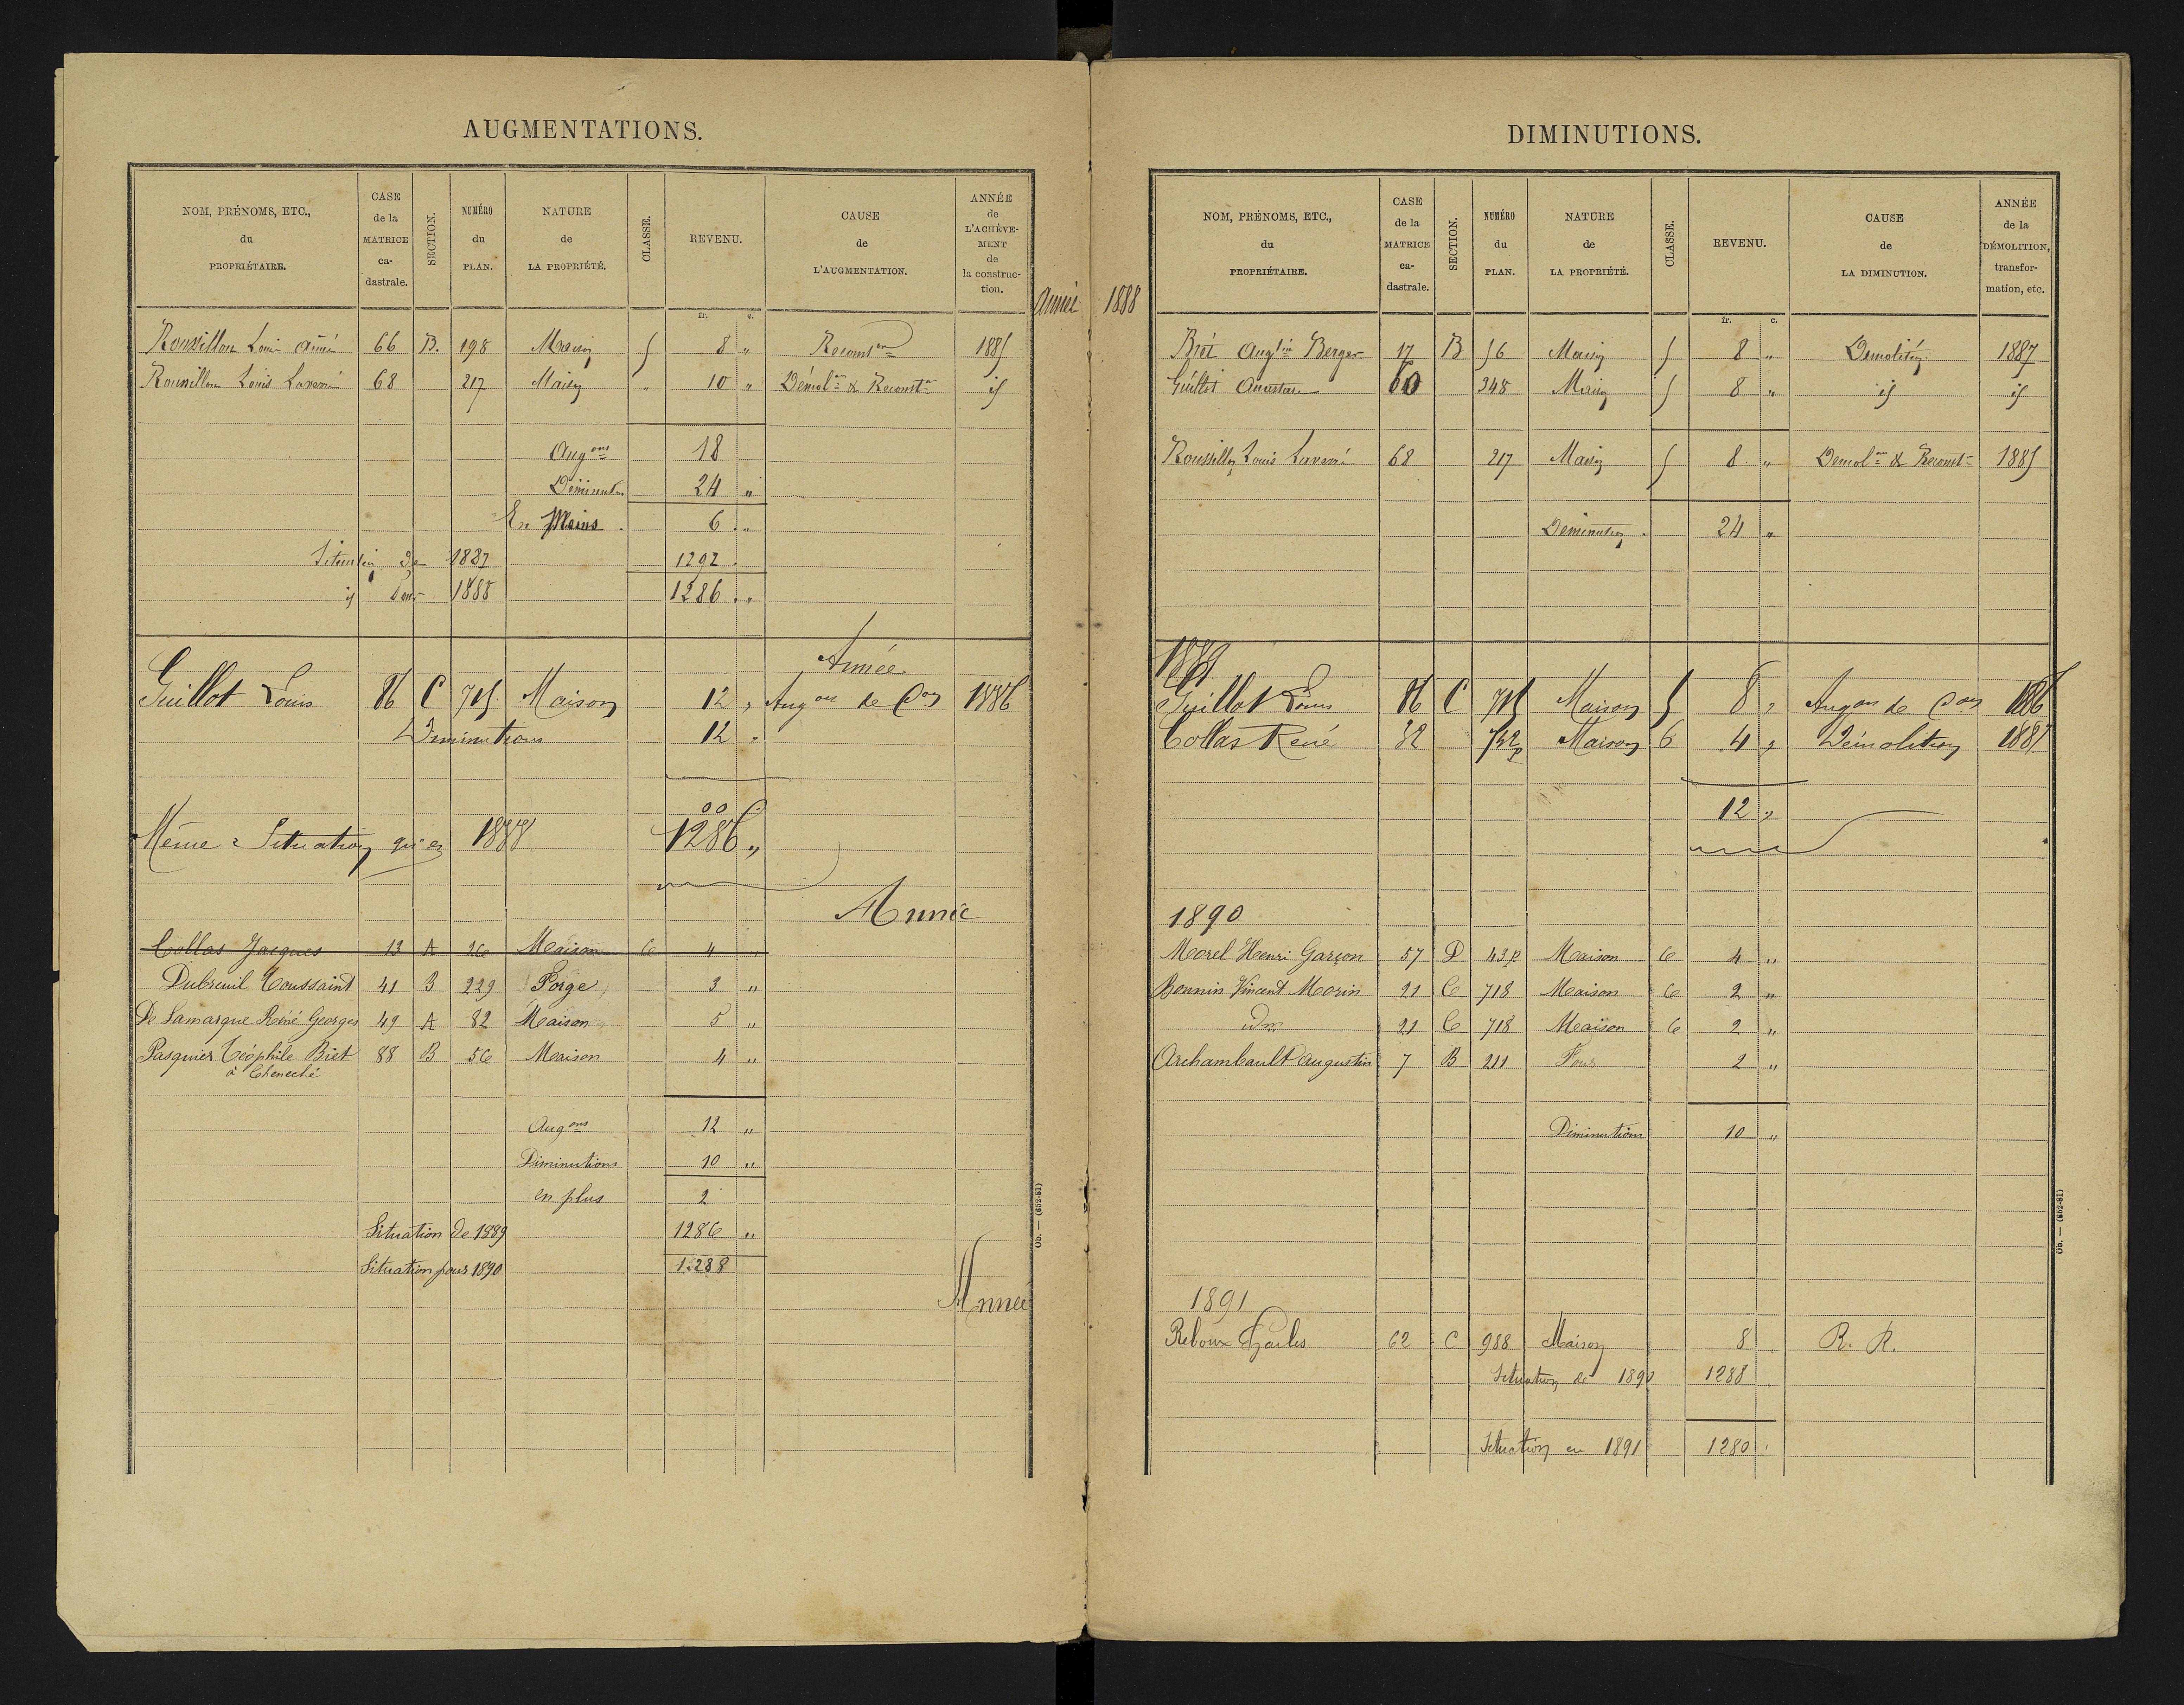 AUGMENTATIONS.
NOM, PRÉNOMS, ETC., du PROPRIÉTAIRE. CASE de la MATRICE ca-dastrale. SECTION. NUMÉRO du PLAN. NATURE de LA PROPRIÉTÉ. CLASSE. REVENU. CAUSE de L'AUGMENTATION. ANNÉE de L'ACHÈVE-MENT de la construc-tion.
fr. c.
Année
Roussillon Louis Aimé 66 B. 198 Maison 5 8 " Reconston 1885
Roussillon Louis Laverré 68 217 Maison " 10 " Démolon & Reconston id
Augons 18
Diminutons 24 "
En Moins 6 "
Situation de 1887 1292
id pour 1888 1286 "
Année
Guillot Louis 86 C 715 Maison 12 " Augon de Con 1886
Diminutions 12 "
00
Même Situation qu'en 1888 1286 "
Année
Collas Jacques 13 A 26 Maison 6 4 "
Dubreuil Toussaint 41 B 229 Forge 3 "
De Lamarque Réné Georges 49 A 82 Maison 5 "
Pasquier Téophile Biet 88 B 56 Maison 4 "
à Cheneché
Augons 12 "
Diminutions 10 "
en plus 2
Situation de 1889 1286 "
Situation pour 1890 1.288
Année
Ob. — (652-81)
DIMINUTIONS.
NOM, PRÉNOMS, ETC., du PROPRIÉTAIRE. CASE de la MATRICE ca-dastrale. SECTION. NUMÉRO du PLAN. NATURE de LA PROPRIÉTÉ. CLASSE. REVENU. CAUSE de LA DIMINUTION. ANNÉE de la DÉMOLITION, transfor-mation, etc.
1888
fr. c.
Augtin Berger 17 B 56 Maison 5 8 " Démolition 1887
60 248 Maison 5 8 " id id
Roussillon Louis Laverré 68 217 Maison 5 8 " Demolon & Reconston 1885
Diminution 24 "
1889
Guillot Louis 86 C 715 Maison 5 8 " Augon de Con 1886
Collas René 32 742p Maison 6 4 " Démolition 1887
12 "
1890
Morel Henri Garçon 57 D 43p Maison 6 4 "
Bonnin Vincent Morin 21 C 718 Maison 6 2 "
idm 21 C 718 Maison 6 2 "
Archambault Augustin 7 B 211 Four 2 "
Diminutions 10 "
1891
Reboux Charles 62 C 988 Maison 8 R. R.
Situation de 1890 1288
Situation en 1891 1280
Ob. — (652-81)